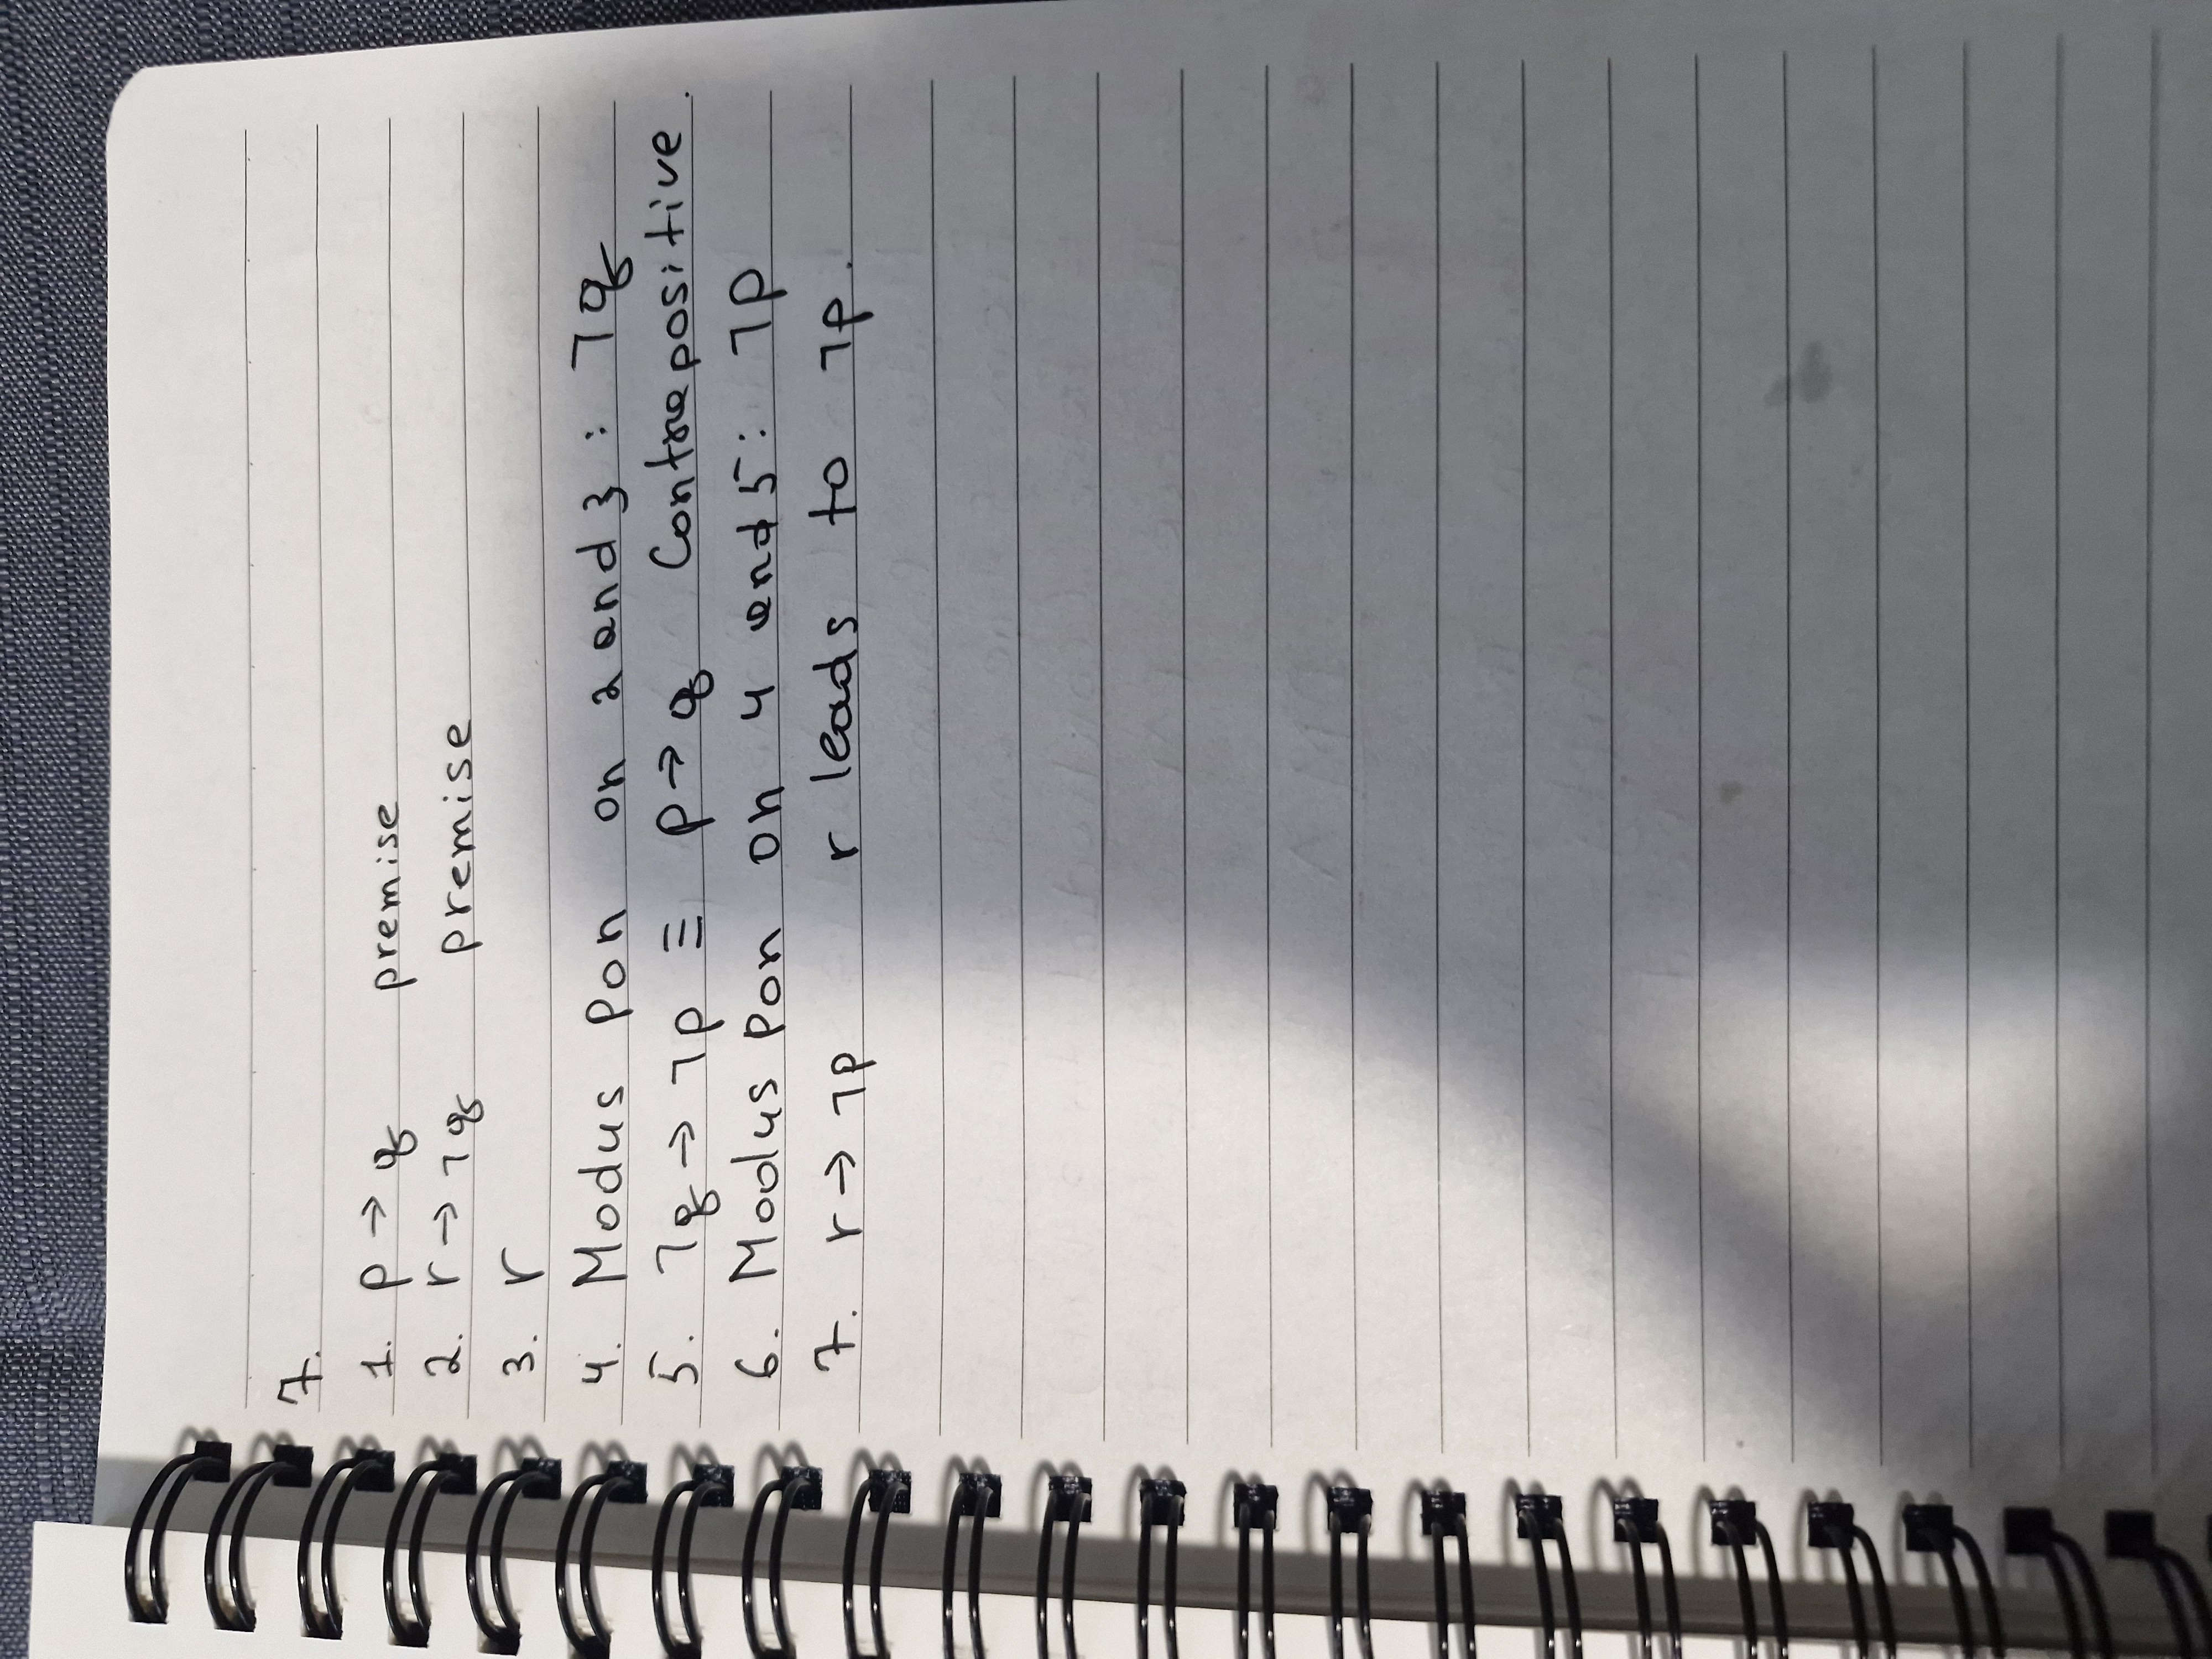 7.
1. p → q premise
2. r → ¬q premise
3. r
4. Modus Pon on 2 and 3 : ¬q
5. ¬q → ¬p ≡ p → q Contrapositive.
6. Modus Pon on 4 and 5: ¬p
7. r → ¬p r leads to ¬p.